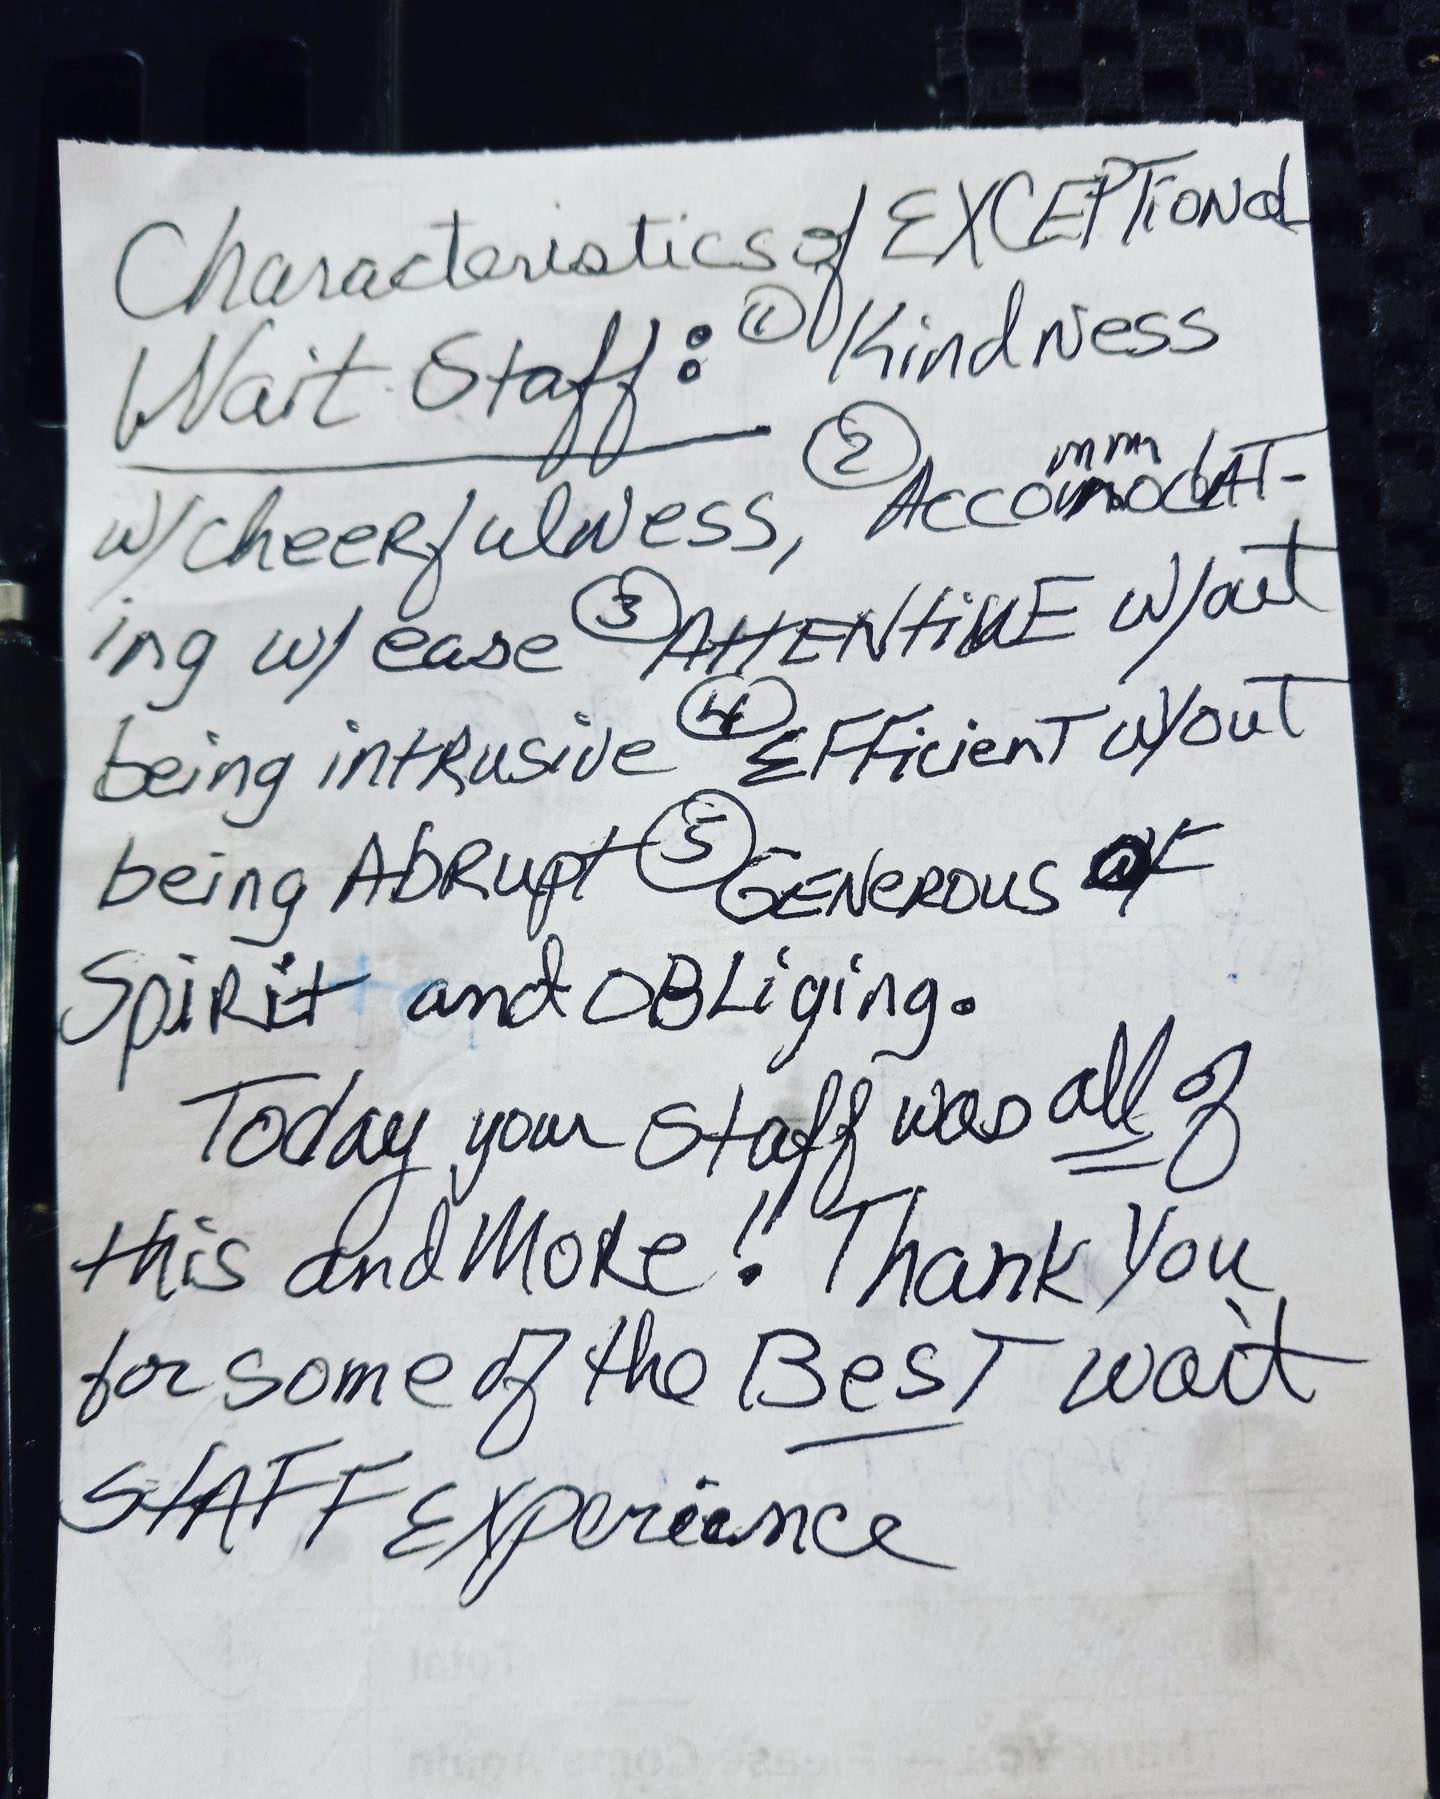 Characteristics of EXCEPTIONAL
Wait Staff: ① Kindness
w/cheerfulness, ② Accommodat-
ing w/ ease ③ Attentive w/out
being intrusive ④ Efficient w/out
being Abrupt ⑤ Generous of
Spirit and obliging.
Today your staff was all of
this and More! Thank You
for some of the Best wait
Staff Experience
Total
Thank You - Please Come Again